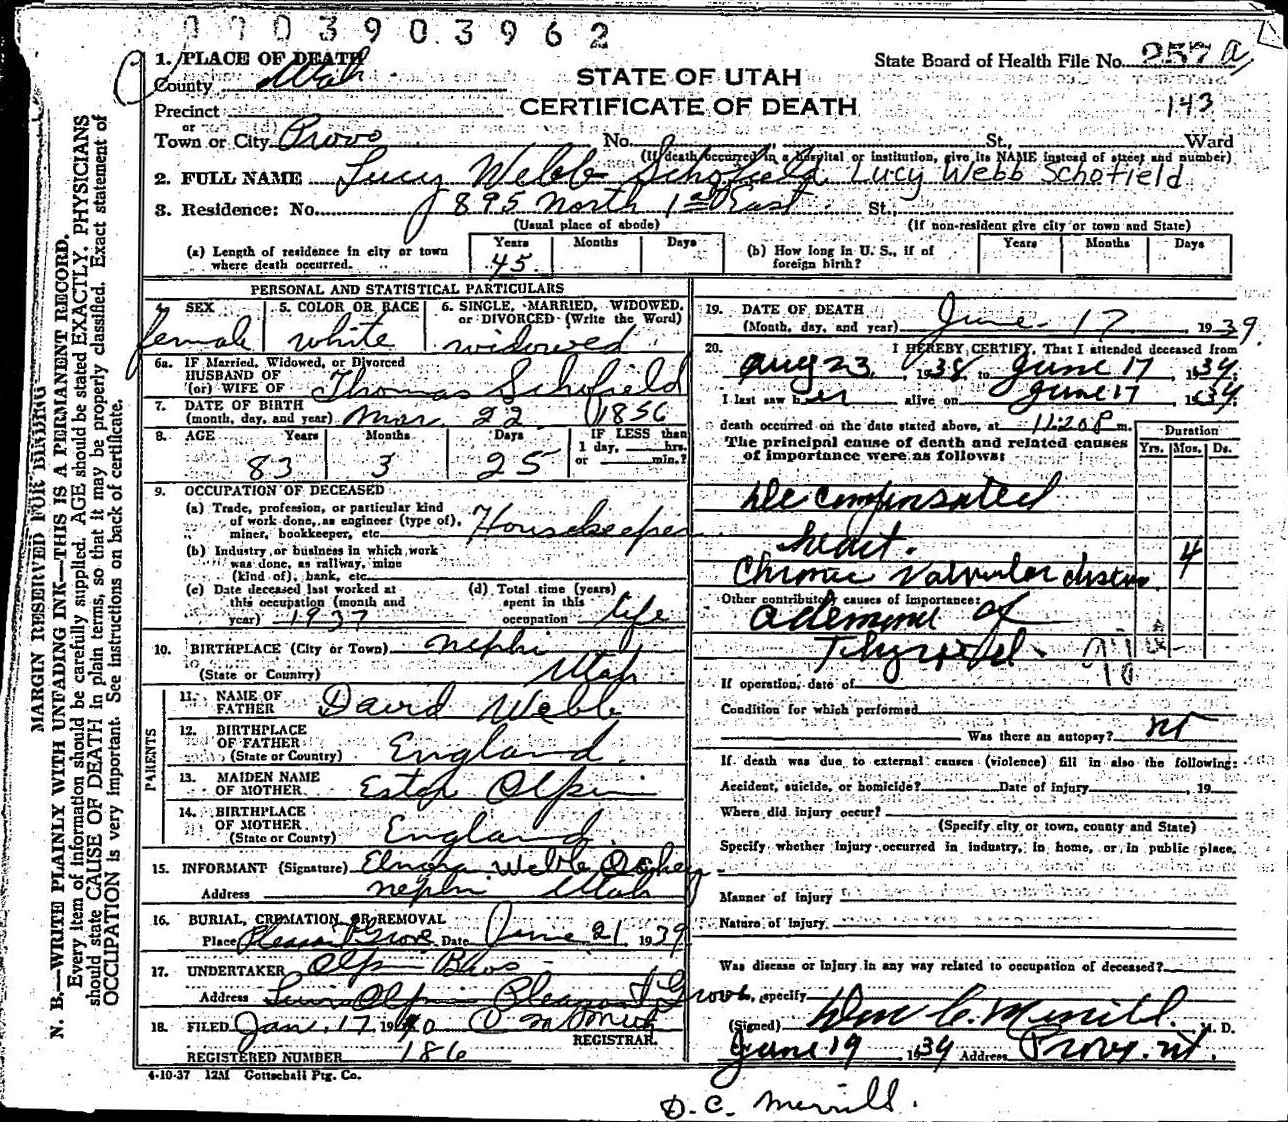 0003903962
1. PLACE OF DEATH
County Utah
STATE OF UTAH
CERTIFICATE OF DEATH
State Board of Health File No. 257 a
143
Precinct
or
Town or City Provo No. St., Ward
(If death occurred in a hospital or institution, give its NAME instead of street and number)
2. FULL NAME Lucy Webb Schofield Lucy Webb Schofield
3. Residence: No. 895 North 1st East St.,
(Usual place of abode) (If non-resident give city or town and State)
(a) Length of residence in city or town where death occurred. Years 45 Months Days
(b) How long in U. S., if of foreign birth? Years Months Days
PERSONAL AND STATISTICAL PARTICULARS
4. SEX female
5. COLOR OR RACE white
6. SINGLE, MARRIED, WIDOWED, or DIVORCED (Write the Word) widowed
6a. IF Married, Widowed, or Divorced
HUSBAND OF
(or) WIFE OF Thomas Schofield
7. DATE OF BIRTH
(month, day, and year) Mar. 22 1856
8. AGE Years 83 Months 3 Days 25 IF LESS than 1 day, hrs. or min.?
9. OCCUPATION OF DECEASED
(a) Trade, profession, or particular kind of work done, as engineer (type of), miner, bookkeeper, etc. Housekeeper
(b) Industry or business in which work was done, as railway, mine (kind of), bank, etc.
(c) Date deceased last worked at this occupation (month and year) 1937
(d) Total time (years) spent in this occupation life
10. BIRTHPLACE (City or Town) Nephi
(State or Country) Utah
PARENTS
11. NAME OF FATHER David Webb
12. BIRTHPLACE OF FATHER
(State or Country) England
13. MAIDEN NAME OF MOTHER Alpin
14. BIRTHPLACE OF MOTHER
(State or Country) England
15. INFORMANT (Signature) Elnora Webb
Address Nephi Utah
16. BURIAL, CREMATION, OR REMOVAL
Place Pleasant Grove Date June 21 1939
17. UNDERTAKER Olpin Bros
Address Olpin Pleasant Grove
18. FILED Jan. 17 1940
REGISTRAR.
REGISTERED NUMBER 186
4-10-37 12M Gottschall Ptg. Co.
19. DATE OF DEATH
(Month, day, and year) June 17, 1939.
20. I HEREBY CERTIFY, That I attended deceased from
Aug 23, 1938 to June 17, 1939.
I last saw her alive on June 17, 1939.
death occurred on the date stated above, at 11:20 P m.
The principal cause of death and related causes of importance were as follows:
Duration
Yrs. Mos. Ds.
Decompensated
heart. 4
Chronic Valvular disease
Other contributory causes of importance:
of
Thyroid.
If operation, date of
Condition for which performed
Was there an autopsy?
If death was due to external causes (violence) fill in also the following:
Accident, suicide, or homicide? Date of injury , 19
Where did injury occur?
(Specify city or town, county and State)
Specify whether injury occurred in industry, in home, or in public place.
Manner of injury
Nature of injury
Was disease or injury in any way related to occupation of deceased?
If so, specify
(Signed) C. Merrill, M. D.
June 19 1939 Address Provo, Ut.
D. C. Merrill.
MARGIN RESERVED FOR BINDING
N. B.—WRITE PLAINLY WITH UNFADING INK—THIS IS A PERMANENT RECORD.
Every item of information should be carefully supplied. AGE should be stated EXACTLY. PHYSICIANS
should state CAUSE OF DEATH in plain terms, so that it may be properly classified. Exact statement of
OCCUPATION is very important. See instructions on back of certificate.